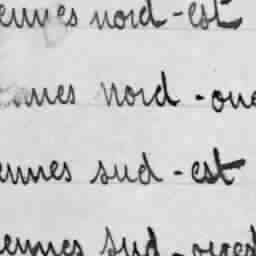 ennes nord-est
ennes nord-oue
ennes sud-est
ennes sud-ouest